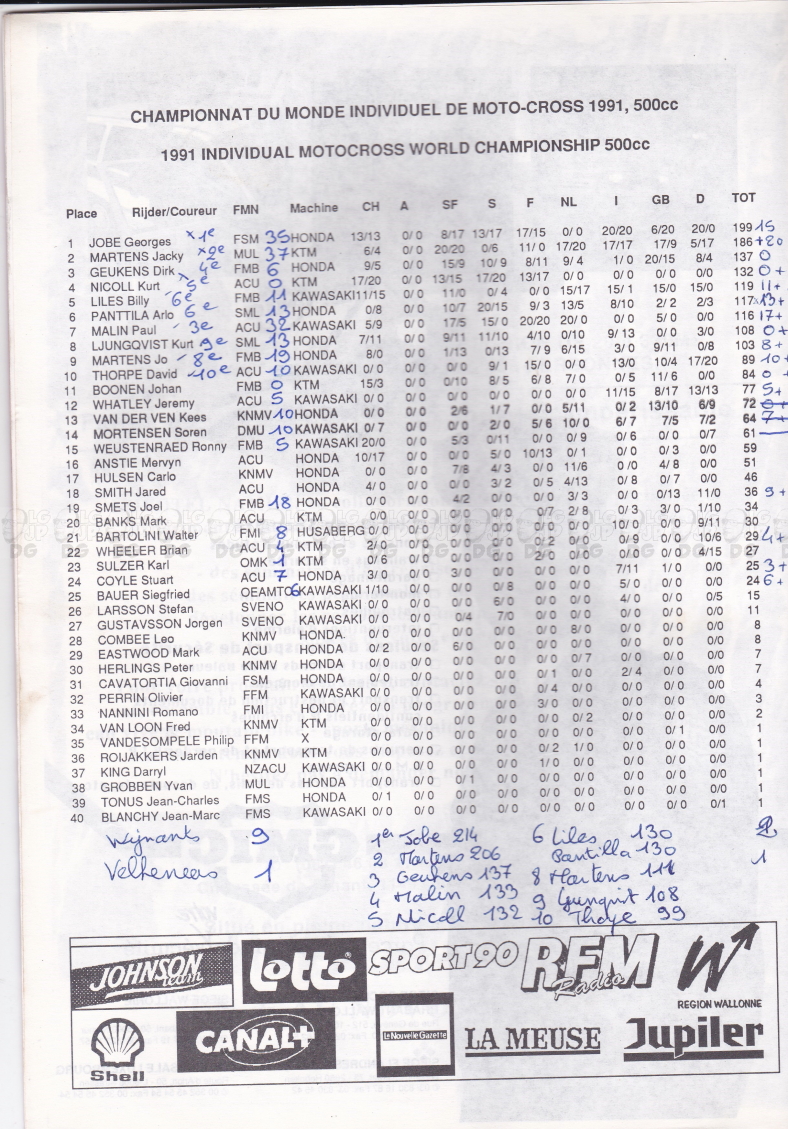 CHAMPIONNAT DU MONDE INDIVIDUEL DE MOTO-CROSS 1991, 500cc
1991 INDIVIDUAL MOTOCROSS WORLD CHAMPIONSHIP 500cc
Place Rijder/Coureur FMN Machine CH A SF S F NL I GB D TOT
1 JOBE Georges x1e FSM 35 HONDA 13/13 0/0 8/17 13/17 17/15 0/0 20/20 6/20 20/0 199 15
2 MARTENS Jacky x2e MUL 37 KTM 6/4 0/0 20/20 0/6 11/0 17/20 17/17 17/9 5/17 186 +20
3 GEUKENS Dirk 4e FMB 6 HONDA 9/5 0/0 15/9 10/9 8/11 9/4 1/0 20/15 8/4 137 0
4 NICOLL Kurt 5e ACU 0 KTM 17/20 0/0 13/15 17/20 13/17 0/0 0/0 0/0 0/0 132 0+
5 LILES Billy 6e FMB 11 KAWASAKI 11/15 0/0 11/0 0/4 0/0 15/17 15/1 15/0 15/0 119 11+
6 PANTTILA Arlo 6e SML 13 HONDA 0/8 0/0 10/7 20/15 9/3 13/5 8/10 2/2 2/3 117 13+
7 MALIN Paul 3e ACU 32 KAWASAKI 5/9 0/0 17/5 15/0 20/20 20/0 0/0 5/0 0/0 116 17+
8 LJUNGQVIST Kurt 9e SML 13 HONDA 7/11 0/0 9/11 11/10 4/10 0/10 9/13 0/0 3/0 108 0+
9 MARTENS Jo 8e FMB 19 HONDA 8/0 0/0 1/13 0/13 7/9 6/15 3/0 9/11 0/8 103 8+
10 THORPE David 10e ACU 10 KAWASAKI 0/0 0/0 0/0 9/1 15/0 0/0 13/0 10/4 17/20 89 10+
11 BOONEN Johan FMB 0 KTM 15/3 0/0 0/10 8/5 6/8 7/0 0/5 11/6 0/0 84 0+
12 WHATLEY Jeremy ACU 5 KAWASAKI 0/0 0/0 0/0 0/0 0/0 0/0 11/15 8/17 13/13 77 5+
13 VAN DER VEN Kees KNMV 10 HONDA 0/0 0/0 2/6 1/7 0/0 5/11 0/2 13/10 6/9 72
14 MORTENSEN Soren DMU 10 KAWASAKI 0/7 0/0 0/0 2/0 5/6 10/0 6/7 7/5 7/2 64 7+
15 WEUSTENRAED Ronny FMB 5 KAWASAKI 20/0 0/0 5/3 0/11 0/0 0/9 0/6 0/0 0/7 61
16 ANSTIE Mervyn ACU HONDA 10/17 0/0 0/0 5/0 10/13 0/1 0/0 0/3 0/0 59
17 HULSEN Carlo KNMV HONDA 0/0 0/0 7/8 4/3 0/0 11/6 0/0 4/8 0/0 51
18 SMITH Jared ACU HONDA 4/0 0/0 0/0 3/2 0/5 4/13 0/8 0/7 0/0 46
19 SMETS Joel FMB 18 HONDA 0/0 0/0 4/2 0/0 0/0 3/3 0/0 0/13 11/0 36 9+
20 BANKS Mark ACU KTM 0/0 0/0 0/0 0/0 0/7 2/8 0/3 3/0 1/10 34
21 BARTOLINI Walter FMI 8 HUSABERG 0/0 0/0 0/0 0/0 0/0 0/0 10/0 0/0 9/11 30
22 WHEELER Brian ACU KTM 2/0 0/0 0/0 0/0 0/2 0/0 0/9 0/0 10/6 29 4+
23 SULZER Karl OMK 1 KTM 0/6 0/0 0/0 0/0 2/0 0/0 0/0 0/0 4/15 27
24 COYLE Stuart ACU 7 HONDA 3/0 0/0 3/0 0/0 0/0 0/0 7/11 1/0 0/0 25 3+
25 BAUER Siegfried OEAMTC 6 KAWASAKI 1/10 0/0 0/0 0/8 0/0 0/0 5/0 0/0 0/0 24 6+
26 LARSSON Stefan SVENO KAWASAKI 0/0 0/0 0/0 6/0 0/0 0/0 4/0 0/0 0/5 15
27 GUSTAVSSON Jorgen SVENO KAWASAKI 0/0 0/0 0/4 7/0 0/0 0/0 0/0 0/0 0/0 11
28 COMBEE Leo KNMV HONDA. 0/0 0/0 0/0 0/0 0/0 8/0 0/0 0/0 0/0 8
29 EASTWOOD Mark ACU HONDA 0/2 0/0 6/0 0/0 0/0 0/0 0/0 0/0 0/0 8
30 HERLINGS Peter KNMV HONDA 0/0 0/0 0/0 0/0 0/0 0/7 0/0 0/0 0/0 7
31 CAVATORTIA Giovanni FSM HONDA 0/0 0/0 0/0 0/0 0/1 0/0 2/4 0/0 0/0 7
32 PERRIN Olivier FFM KAWASAKI 0/0 0/0 0/0 0/0 0/4 0/0 0/0 0/0 0/0 4
33 NANNINI Romano FMI HONDA 0/0 0/0 0/0 0/0 3/0 0/0 0/0 0/0 0/0 3
34 VAN LOON Fred KNMV KTM 0/0 0/0 0/0 0/0 0/0 0/2 0/0 0/0 0/0 2
35 VANDESOMPELE Philip FFM X 0/0 0/0 0/0 0/0 0/0 0/0 0/0 0/1 0/0 1
36 ROIJAKKERS Jarden KNMV KTM 0/0 0/0 0/0 0/0 0/2 1/0 0/0 0/0 0/0 1
37 KING Darryl NZACU KAWASAKI 0/0 0/0 0/0 0/0 1/0 0/0 0/0 0/0 0/0 1
38 GROBBEN Yvan MUL HONDA 0/0 0/0 0/1 0/0 0/0 0/0 0/0 0/0 0/0 1
39 TONUS Jean-Charles FMS HONDA 0/1 0/0 0/0 0/0 0/0 0/0 0/0 0/0 0/0 1
40 BLANCHY Jean-Marc FMS KAWASAKI 0/0 0/0 0/0 0/0 0/0 0/0 0/0 0/0 0/1 1
Weijnants 9
Velkeneers 1
1er Jobe 214
2 Martens 206
3 Geukens 137
4 Malin 133
5 Nicoll 132
6 Liles 130
Pantilla 130
8 Martens 111
9 Ljunquist 108
10 Thorpe 99
2
1
JOHNSON team
Lotto
SPORT90
RFM Radio
W
REGION WALLONNE
Shell
CANAL+
La Nouvelle Gazette
LA MEUSE
Jupiler